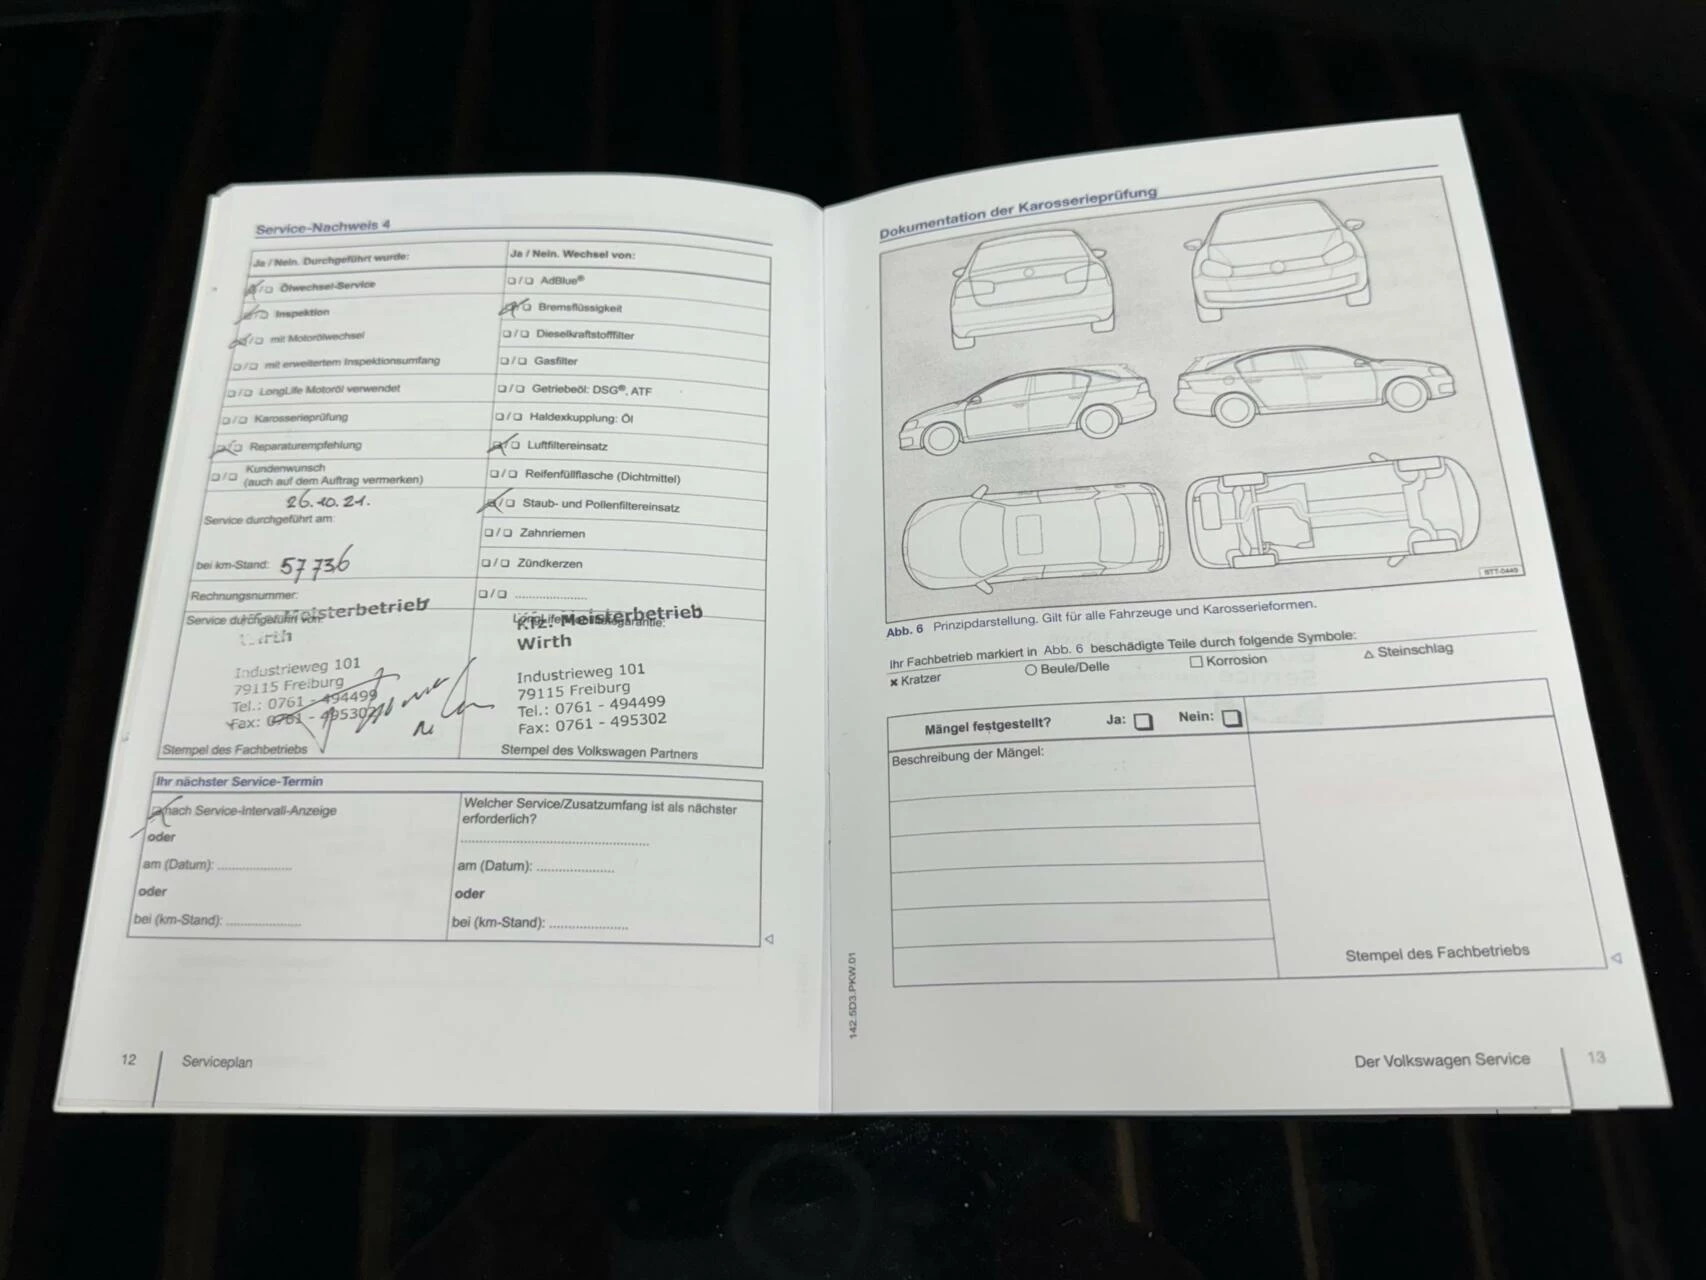 Service-Nachweis 4
Ja / Nein. Durchgeführt wurde:
❏/❏ Ölwechsel-Service
❏/❏ Inspektion
❏/❏ mit Motorölwechsel
❏/❏ mit erweitertem Inspektionsumfang
❏/❏ LongLife Motoröl verwendet
❏/❏ Karosserieprüfung
❏/❏ Reparaturempfehlung
❏/❏ Kundenwunsch
(auch auf dem Auftrag vermerken)
26.10.21.
Service durchgeführt am:
bei km-Stand: 57736
Rechnungsnummer:
Service durchgeführt von:
Meisterbetrieb
Wirth
Industrieweg 101
79115 Freiburg
Tel.: 0761 - 494499
Fax: 0761 - 495302
Stempel des Fachbetriebs
Ja / Nein. Wechsel von:
❏/❏ AdBlue®
❏/❏ Bremsflüssigkeit
❏/❏ Dieselkraftstofffilter
❏/❏ Gasfilter
❏/❏ Getriebeöl: DSG®, ATF
❏/❏ Haldexkupplung: Öl
❏/❏ Luftfiltereinsatz
❏/❏ Reifenfüllflasche (Dichtmittel)
❏/❏ Staub- und Pollenfiltereinsatz
❏/❏ Zahnriemen
❏/❏ Zündkerzen
❏/❏ ....................
Kfz. Meisterbetrieb
Wirth
Industrieweg 101
79115 Freiburg
Tel.: 0761 - 494499
Fax: 0761 - 495302
Stempel des Volkswagen Partners
Ihr nächster Service-Termin
❏ nach Service-Intervall-Anzeige
oder
am (Datum): ....................
oder
bei (km-Stand): ....................
Welcher Service/Zusatzumfang ist als nächster
erforderlich?
..................................................
am (Datum): ....................
oder
bei (km-Stand): ....................
12 Serviceplan
Dokumentation der Karosserieprüfung
BTT-0449
Abb. 6 Prinzipdarstellung. Gilt für alle Fahrzeuge und Karosserieformen.
Ihr Fachbetrieb markiert in Abb. 6 beschädigte Teile durch folgende Symbole:
✖ Kratzer ○ Beule/Delle □ Korrosion △ Steinschlag
Mängel festgestellt? Ja: ❏ Nein: ❏
Beschreibung der Mängel:
Stempel des Fachbetriebs
142.5D3.PKW.01
Der Volkswagen Service 13